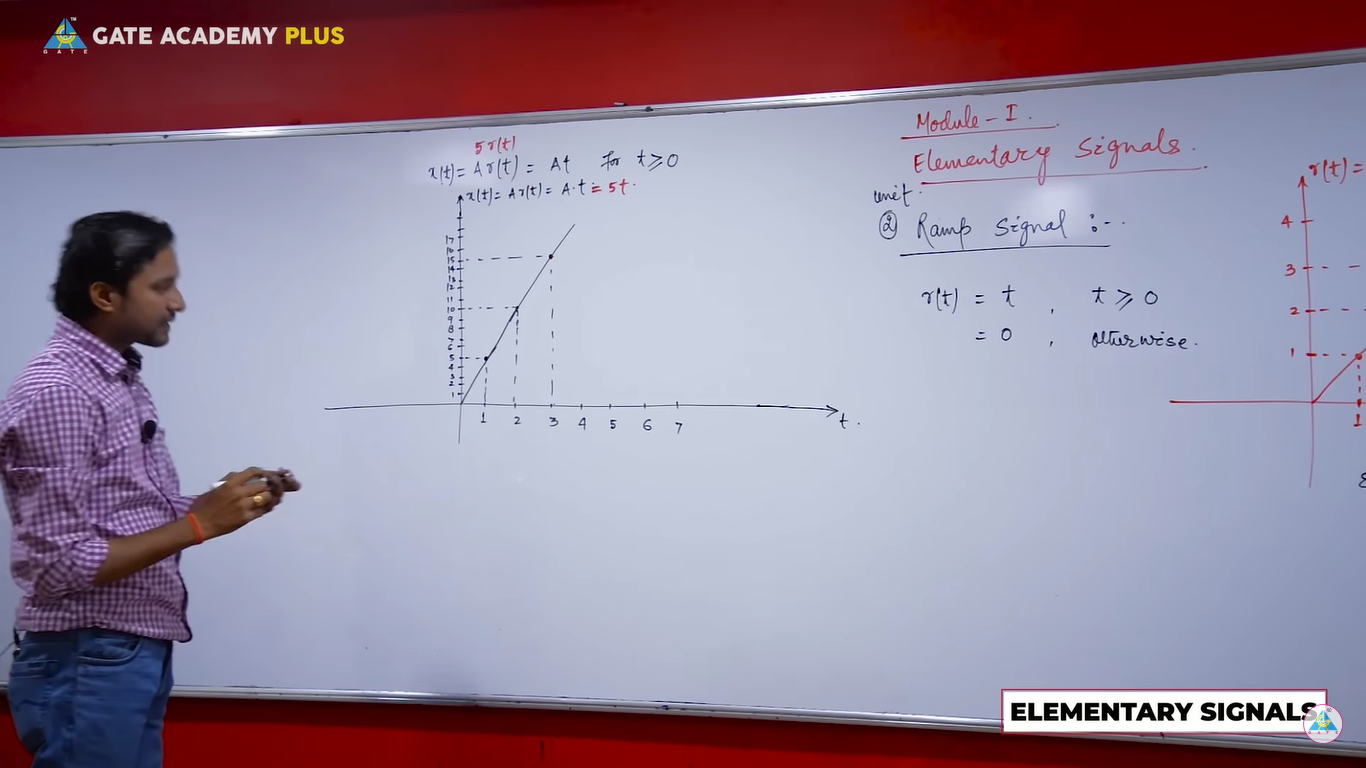 GATE ACADEMY PLUS
GATE
5r(t)
x(t) = Ar(t) = At for t ≥ 0
x(t) = Ar(t) = A·t = 5t.
17
16
15
14
13
12
11
10
9
8
7
6
5
4
3
2
1
1 2 3 4 5 6 7
t.
Module - I.
Elementary Signals.
unit
② Ramp Signal :-
r(t) = t , t ≥ 0
= 0 , otherwise.
r(t) =
4
3
2
1
1
ELEMENTARY SIGNALS
GATE